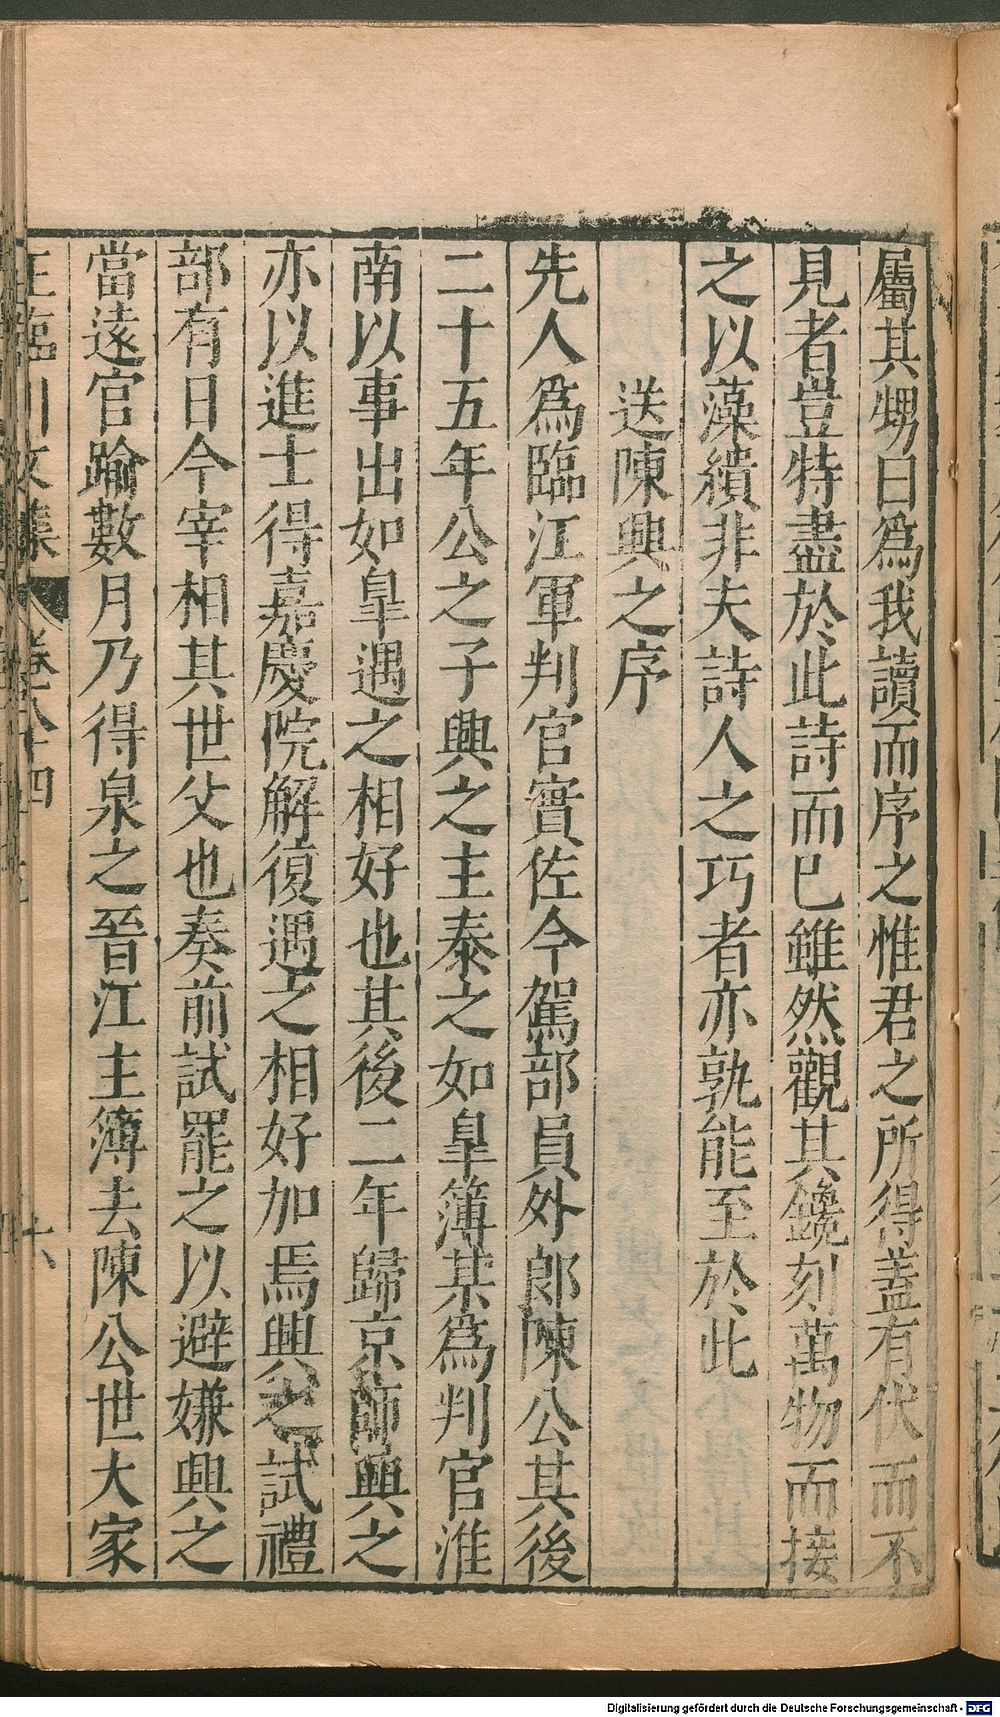 屬其甥曰爲我讀而序之惟君之所得盖有伏而不
見者豈特盡於此詩而已雖然觀其鑱刻萬物而接
之以藻繢非夫詩人之巧者亦孰能至於此
送陳興之序
先人爲臨江軍判官實佐今駕部員外郎陳公其後
二十五年公之子興之主泰之如臯簿某爲判官淮
南以事出如臯遇之相好也其後二年歸京師興之
亦以進士得嘉慶院解復遇之相好加焉興之試禮
部有日今宰相其世父也奏前試罷之以避嫌興之
當遠官踰數月乃得泉之晉江主簿去陳公世大家
王臨川文集 卷八十四 六
Digitalisierung gefördert durch die Deutsche Forschungsgemeinschaft - DFG